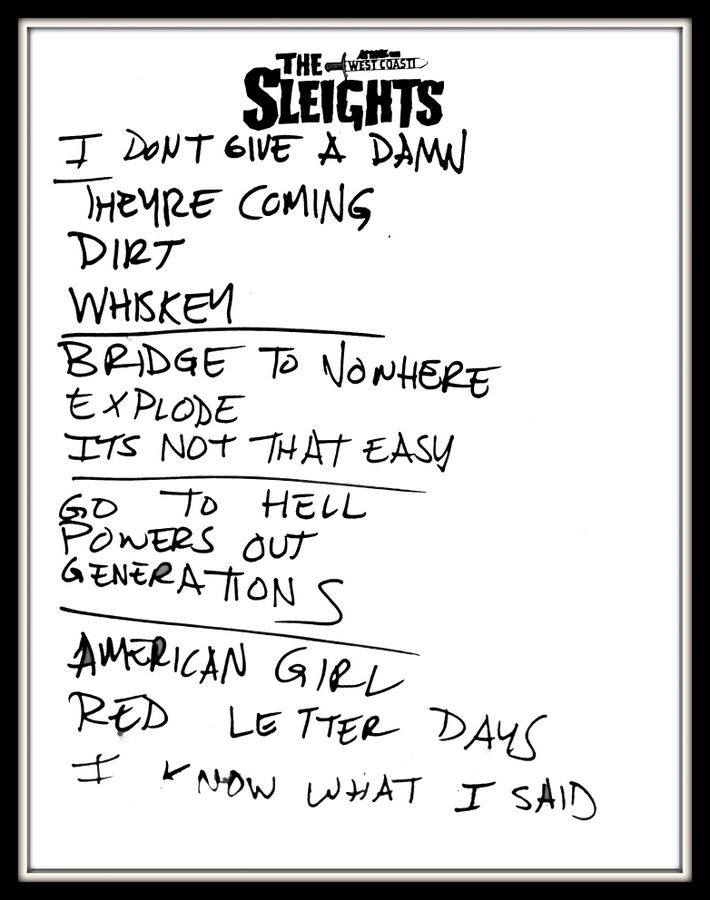 THE
WEST COAST!
SLEIGHTS
I DONT GIVE A DAMN
THEYRE COMING
DIRT
WHISKEY
BRIDGE TO NOWHERE
EXPLODE
ITS NOT THAT EASY
GO TO HELL
POWERS OUT
GENERATIONS
AMERICAN GIRL
RED LETTER DAYS
I KNOW WHAT I SAID